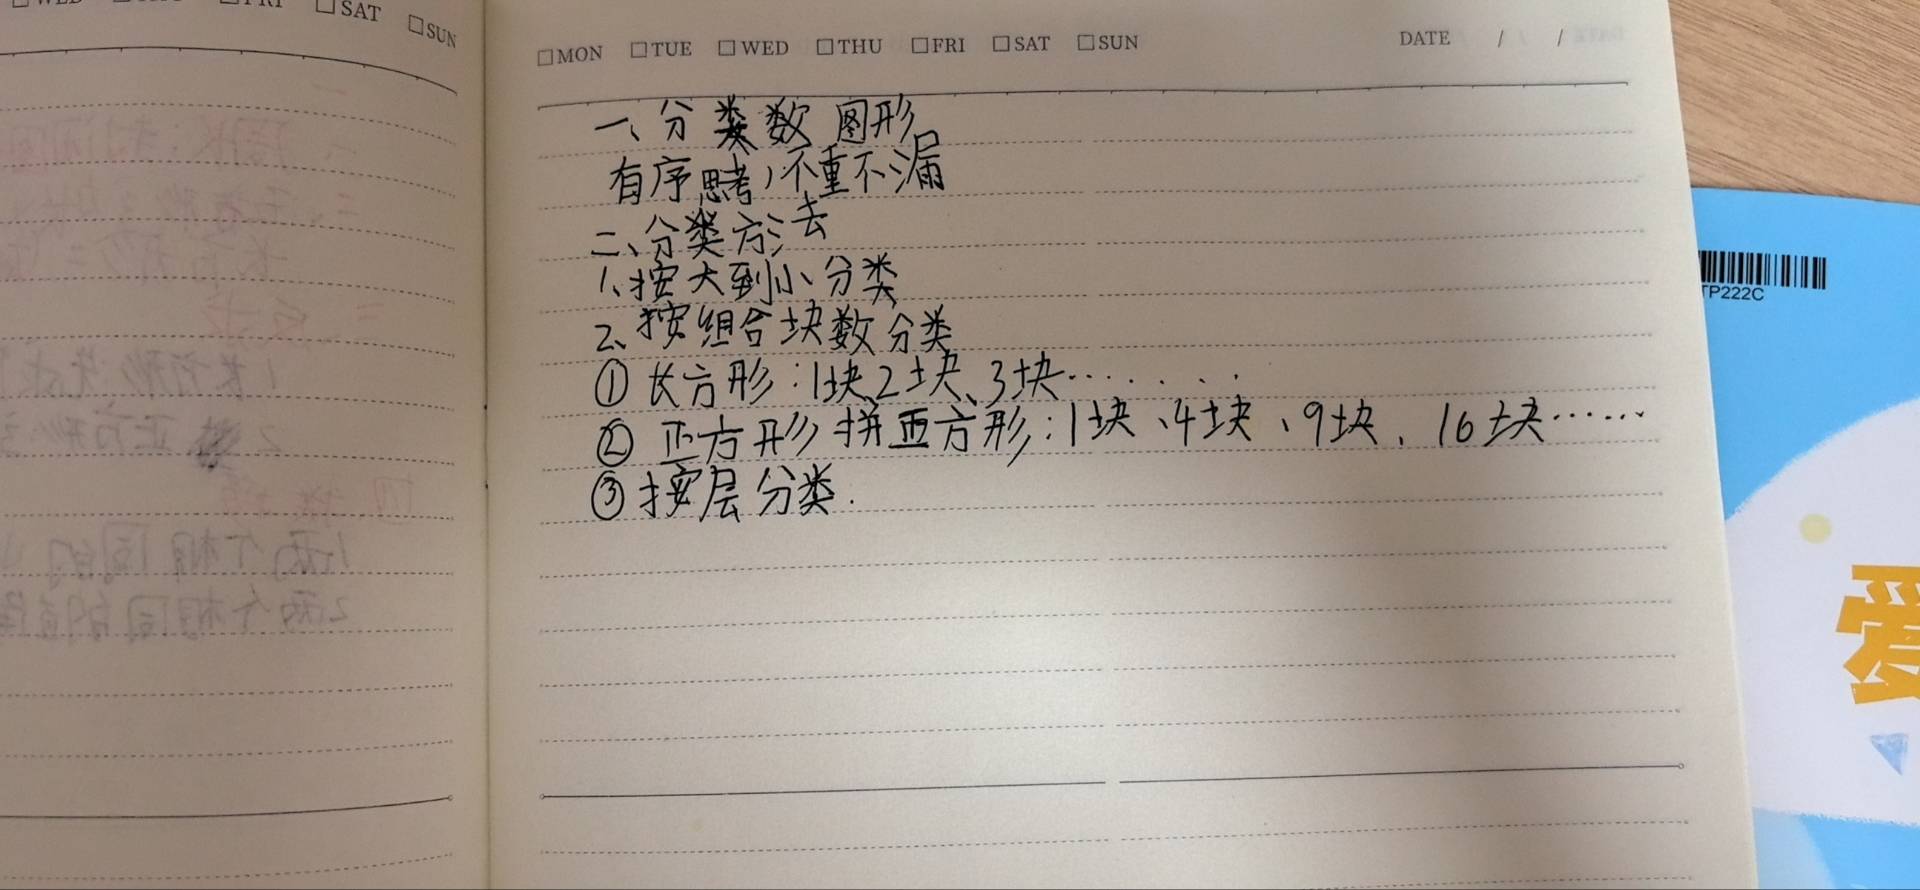 SAT
SUN
MON TUE WED THU FRI SAT SUN DATE / /
一、分类数图形
有序思考,不重不漏
二、分类方法
1、按大到小分类
2、按组合块数分类
① 长方形:1块、2块、3块……
② 正方形拼正方形:1块、4块、9块、16块……
③ 按层分类.
TP222C
爱